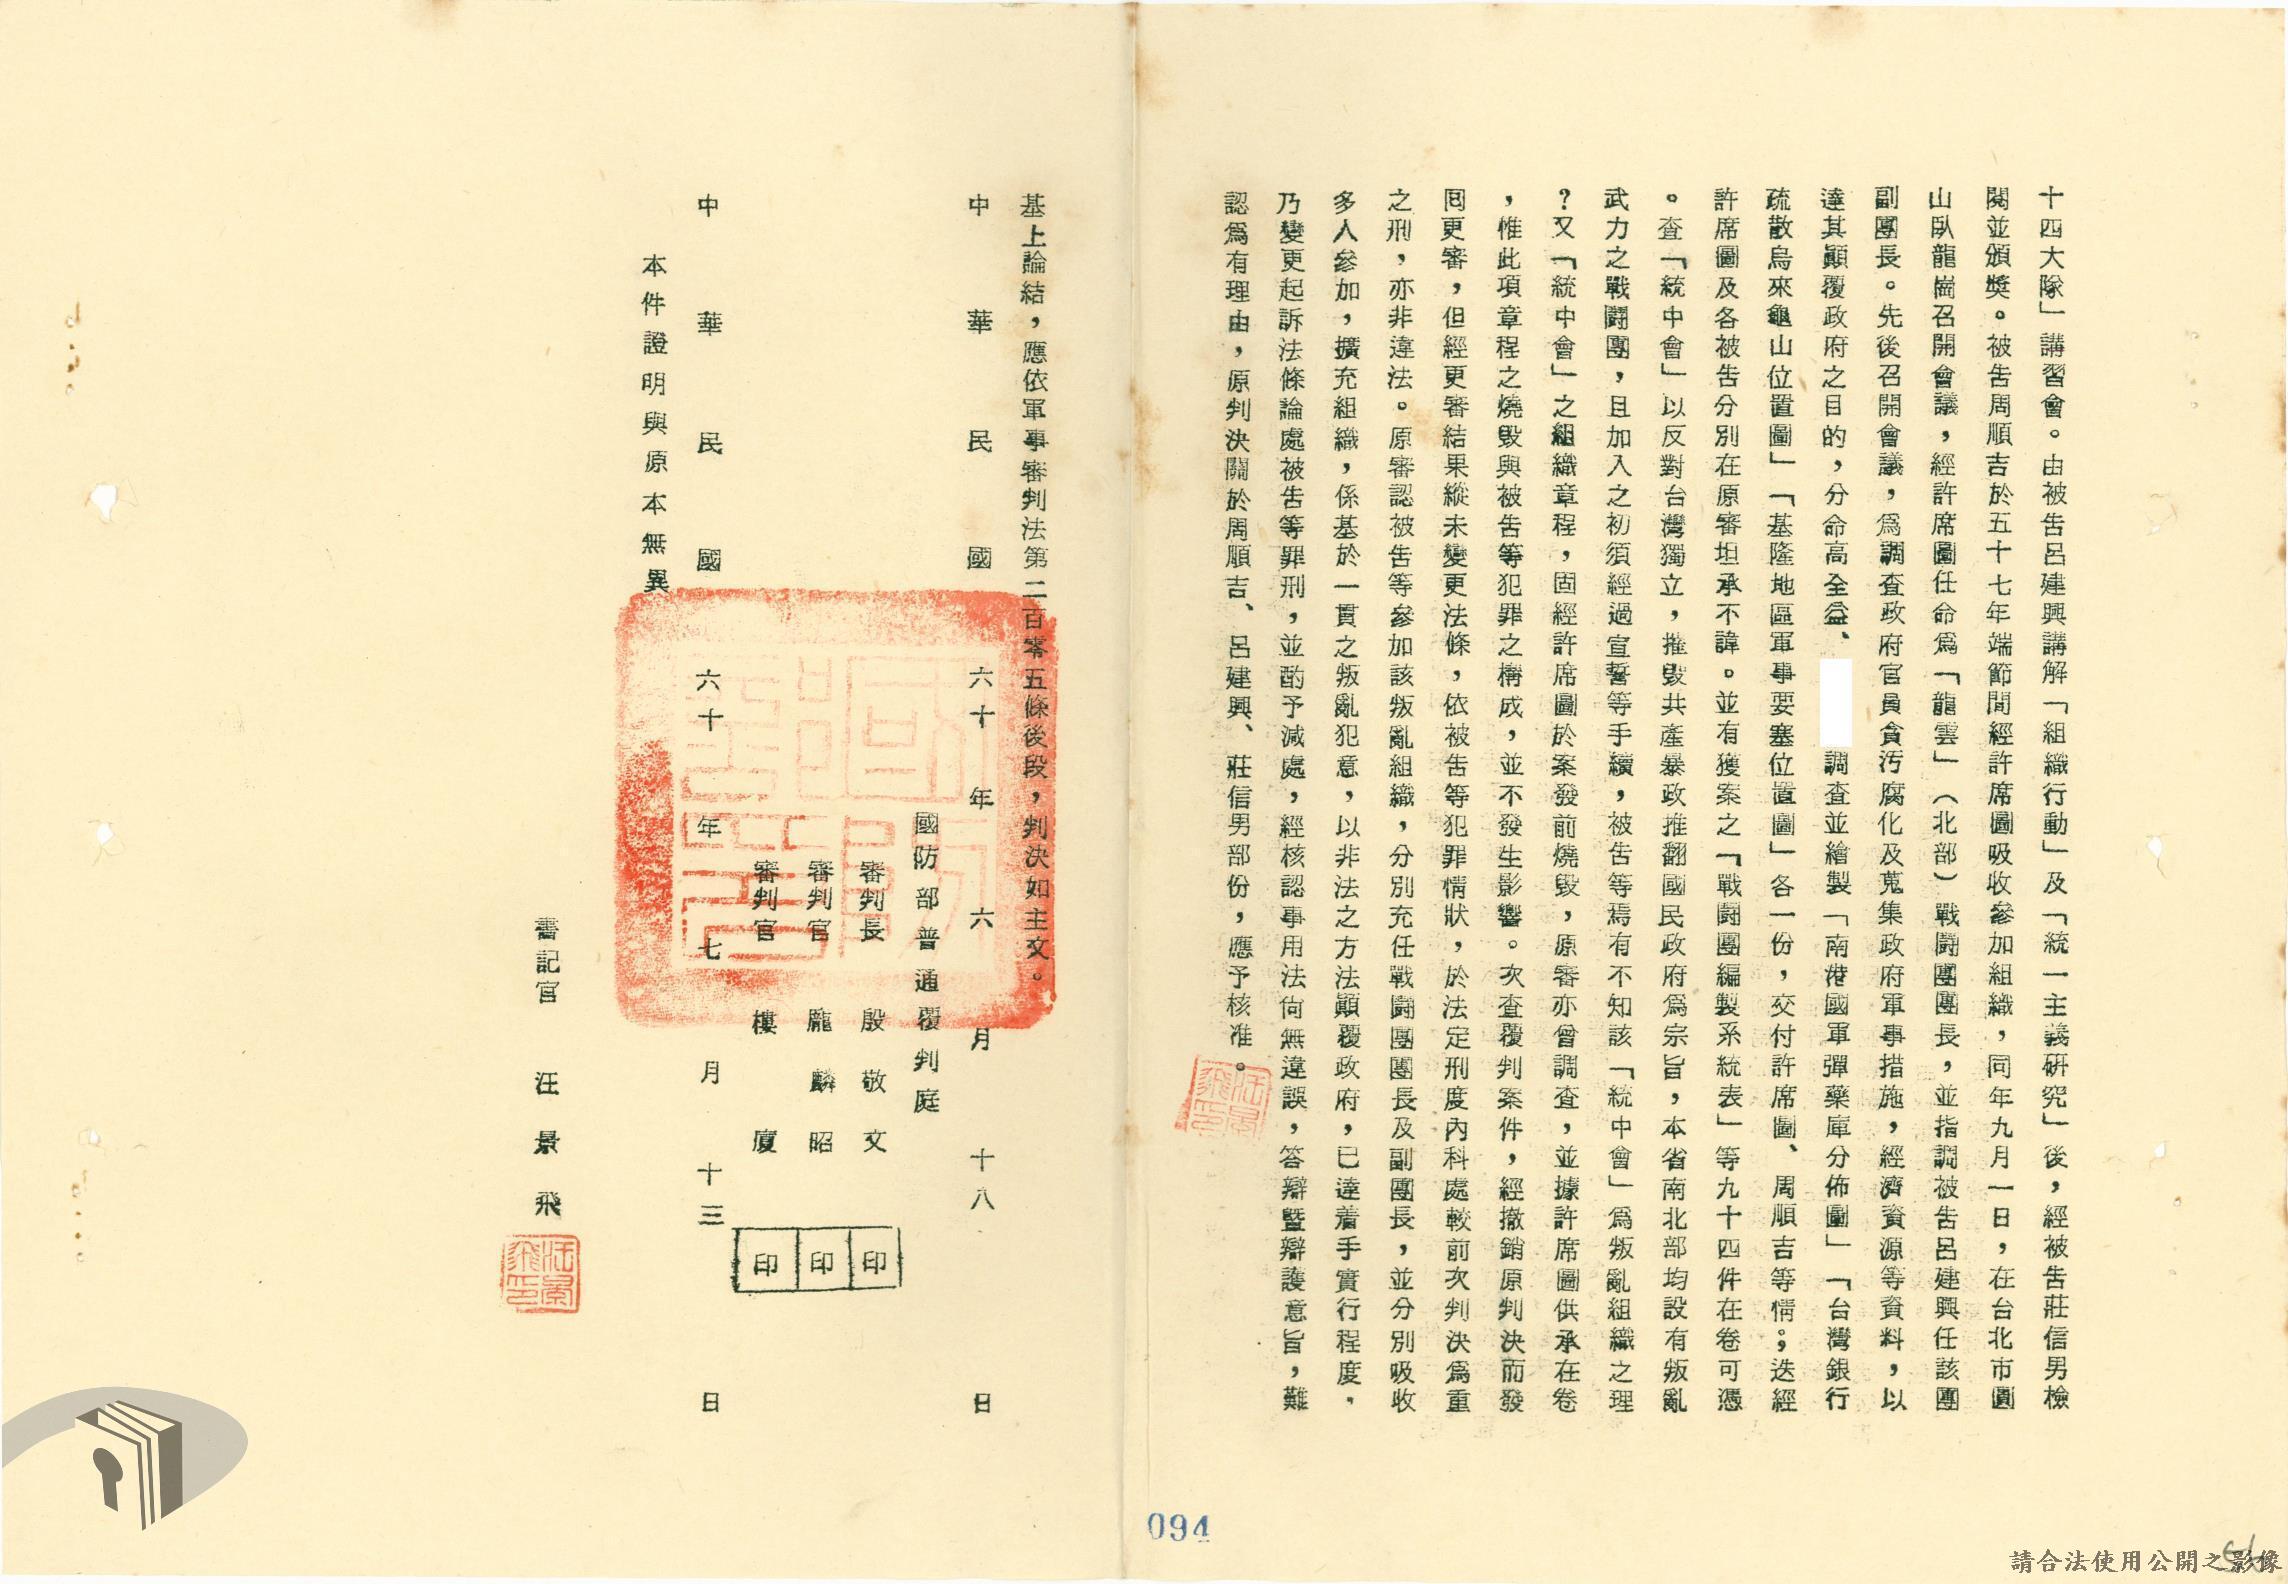 十四大隊」講習會。由被告呂建興講解「組織行動」及「統一主義研究」後，經被告莊信男檢
閱並頒獎。被告周順吉於五十七年端節間經許席圖吸收參加組織，同年九月一日，在台北市圓
山臥龍崗召開會議，經許席圖任命爲「龍雲」（北部）戰鬪團團長，並指調被告呂建興任該團
副團長。先後召開會議，爲調查政府官員貪汚腐化及蒐集政府軍事措施，經濟資源等資料，以
達其顚覆政府之目的，分命高全益、
調查並繪製「南港國軍彈藥庫分佈圖」「台灣銀行
疏散烏來龜山位置圖」「基隆地區軍事要塞位置圖」各一份，交付許席圖、周順吉等情；迭經
許席圖及各被告分別在原審坦承不諱。並有獲案之「戰鬪團編製系統表」等九十四件在卷可憑
。查「統中會」以反對台灣獨立，摧毀共產暴政推翻國民政府爲宗旨，本省南北部均設有叛亂
武力之戰鬪團，且加入之初須經過宣誓等手續，被告等焉有不知該「統中會」爲叛亂組織之理
？又「統中會」之組織章程，固經許席圖於案發前燒毀，原審亦曾調查，並據許席圖供承在卷
，惟此項章程之燒毀與被告等犯罪之構成，並不發生影響。次查覆判案件，經撤銷原判決而發
回更審，但經更審結果縱未變更法條，依被告等犯罪情狀，於法定刑度內科處較前次判決爲重
之刑，亦非違法。原審認被告等參加該叛亂組織，分別充任戰鬪團團長及副團長，並分別吸收
多人參加，擴充組織，係基於一貫之叛亂犯意，以非法之方法顚覆政府，已達着手實行程度，
乃變更起訴法條論處被告等罪刑，並酌予減處，經核認事用法尙無違誤，答辯曁辯護意旨，難
認爲有理由，原判決關於周順吉、呂建興、莊信男部份，應予核准。
汪景飛印
基上論結，應依軍事審判法第二百零五條後段，判決如主文。
中華民國六十年六月十八日
國防部普通覆判庭
審判長 殷敬文 印
審判官 龐麟昭 印
審判官 樓廈 印
中華民國六十年七月十三日
本件證明與原本無異
書記官 汪景飛
汪景飛印
094
請合法使用公開之影像